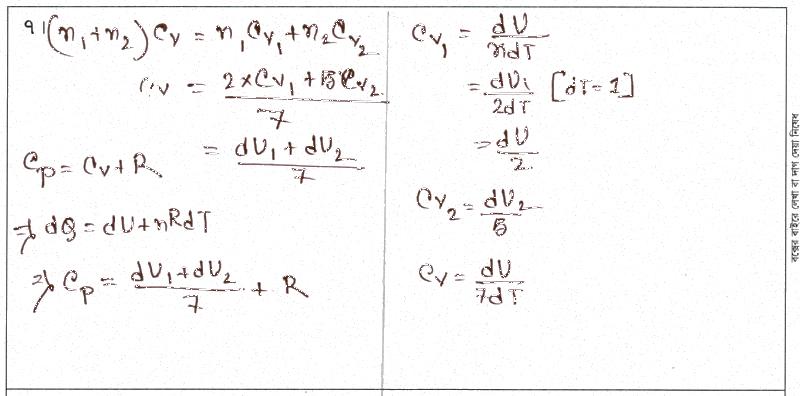 9। (n₁+n₂) Cv = n₁Cv₁ + n₂Cv₂
Cv = (2×Cv₁ + 5Cv₂)/7
= (dU₁ + dU₂)/7
Cp = Cv + R
⇒ dQ = dU + nRdT
⇒ Cp = (dU₁ + dU₂)/7 + R
Cv₁ = dU/ndT
= dU₁/2dT [dT=1]
= dU/2
Cv₂ = dU₂/5
Cv = dU/7dT
বক্সের বাইরে লেখা বা দাগ দেয়া নিষেধ